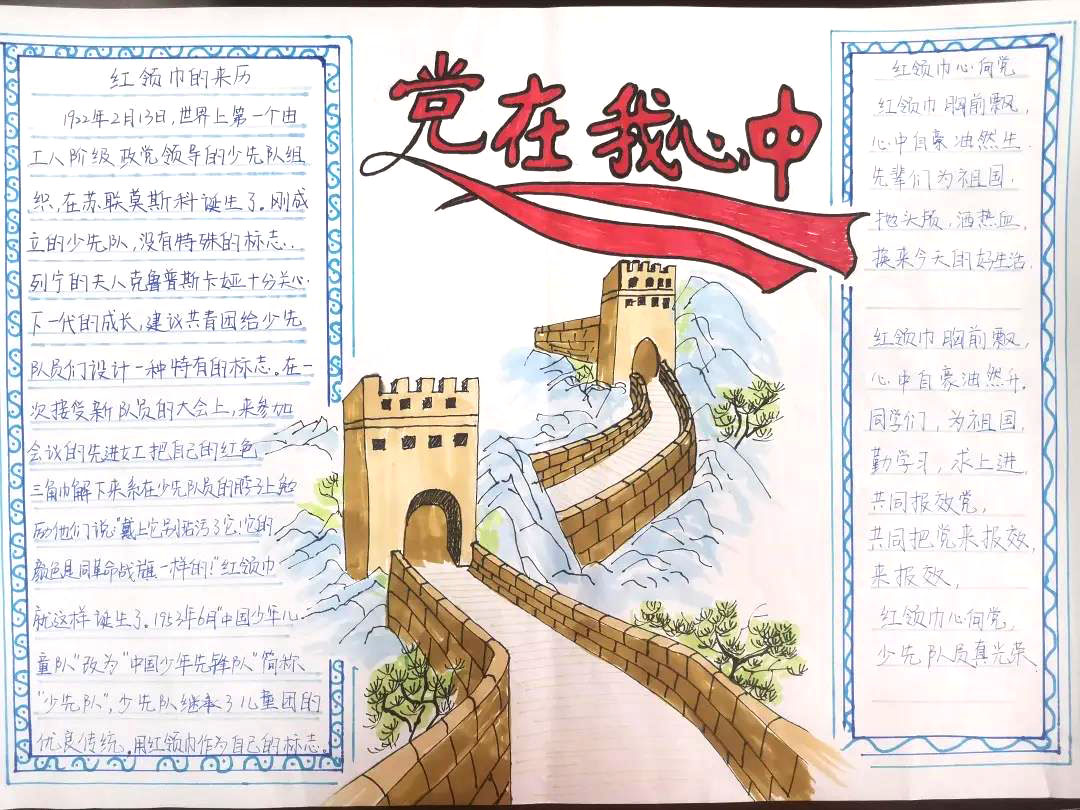 党在我心中
红领巾的来历
1922年2月13日,世界上第一个由
工人阶级政党领导的少先队组
织,在苏联莫斯科诞生了。刚成
立的少先队,没有特殊的标志..
列宁的夫人克鲁普斯卡娅十分关心
下一代的成长,建议共青团给少先
队员们设计一种特有的标志。在一
次接受新队员的大会上,来参加
会议的先进女工把自己的红色
三角巾解下来系在少先队员的脖子上勉
励他们说:“戴上它别玷污了它,它的
颜色是同革命战旗一样的!”红领巾
就这样诞生了。1953年6月“中国少年儿
童队”改为“中国少年先锋队”简称
“少先队”,少先队继承了儿童团的
优良传统.用红领巾作为自己的标志。
红领巾心向党
红领巾胸前飘,
心中自豪油然生.
先辈们为祖国.
抛头颅,洒热血,
换来今天的好生活.
红领巾胸前飘,
心中自豪油然升.
同学们,为祖国,
勤学习,求上进,
共同报效党,
共同把党来报效,
来报效,
红领巾心向党,
少先队员真光荣.